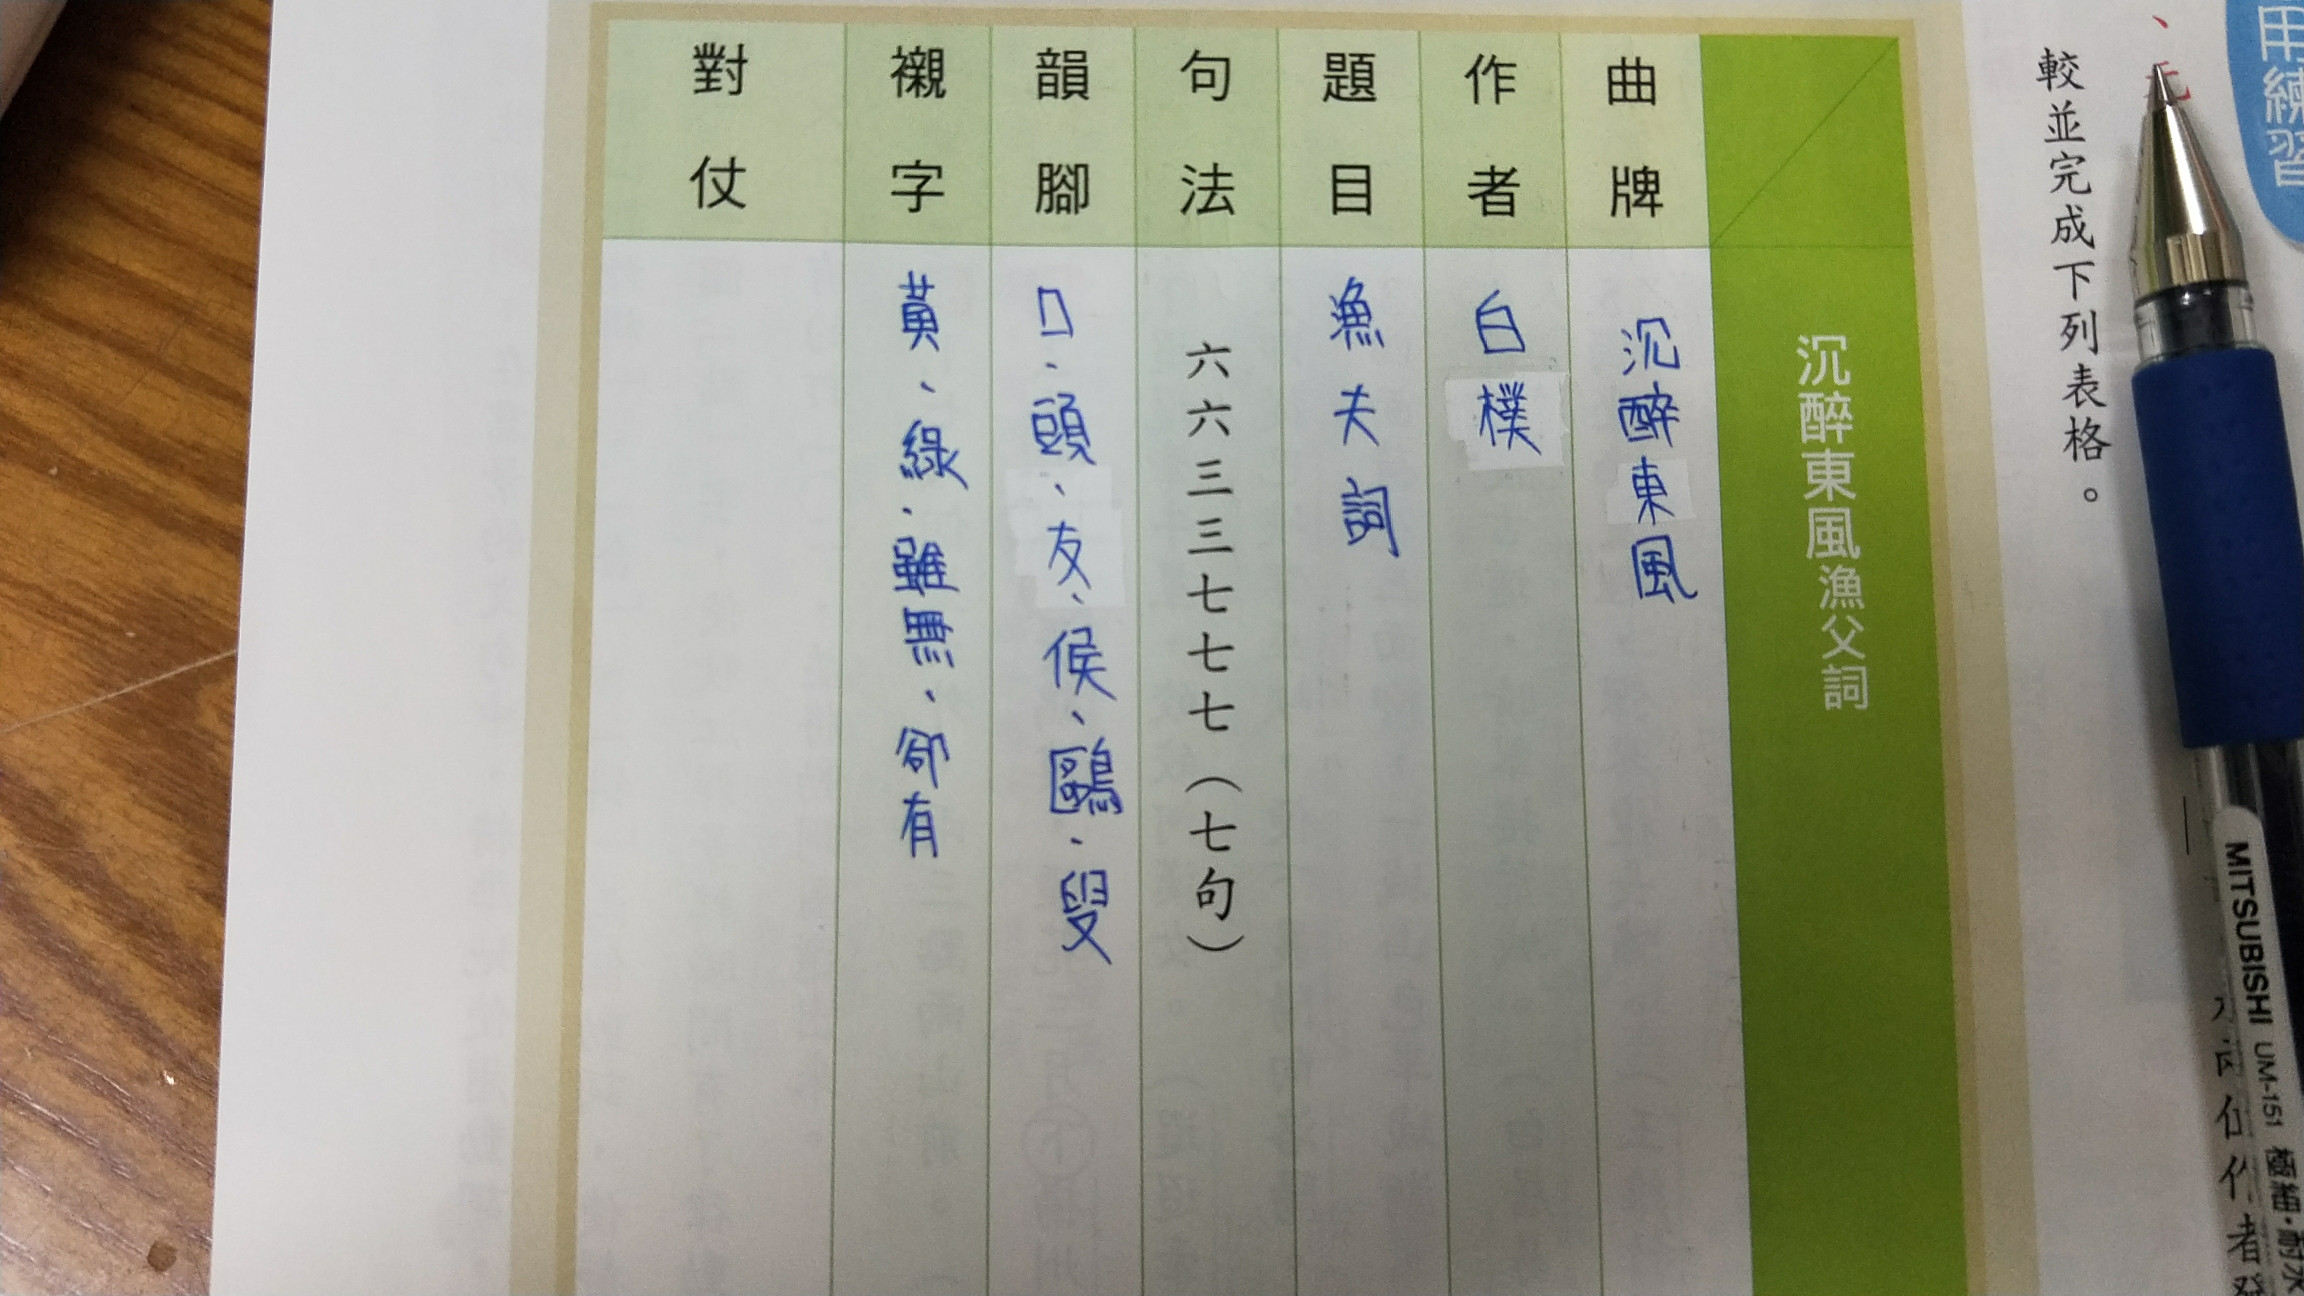 用練習
、元
較並完成下列表格。
沉醉東風漁父詞
曲牌
沉醉東風
作者
白樸
題目
漁夫詞
句法
六六三三七七七（七句）
韻腳
口、頭、友、侯、鷗、叟
襯字
黃、綠、雖無、卻有
對仗
MITSUBISHI UM-151 極細・耐水
作者發